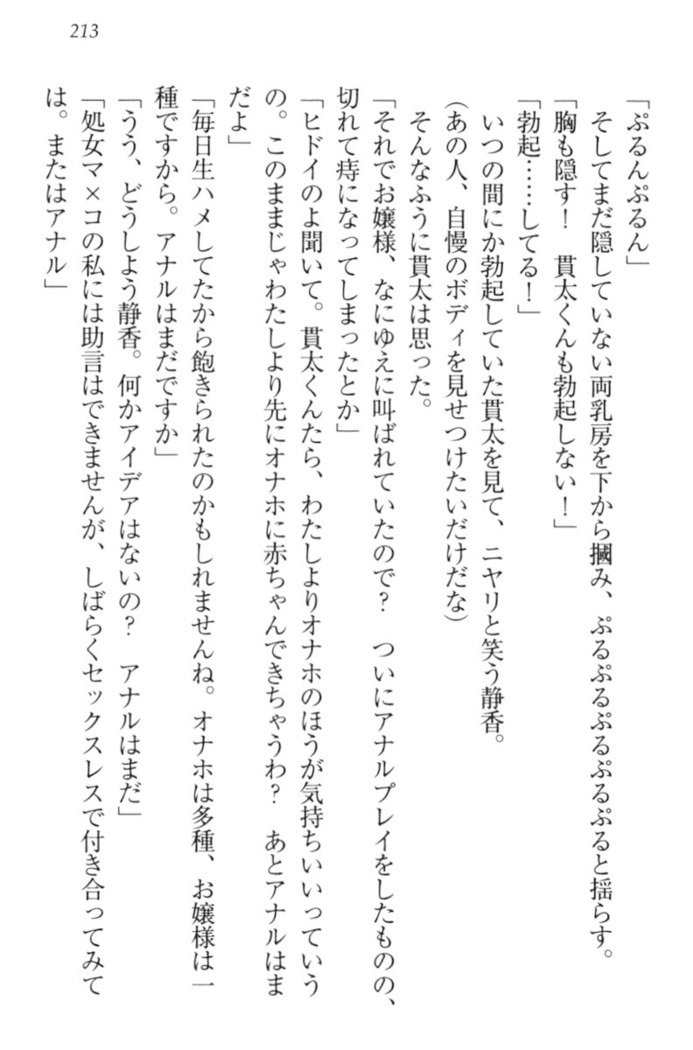 213
「ぷるんぷるん」
　そしてまだ隠していない両乳房を下から摑み、ぷるぷるぷるぷるぷると揺らす。
「胸も隠す！　貫太くんも勃起しない！」
「勃起……してる！」
　いつの間にか勃起していた貫太を見て、ニヤリと笑う静香。
（あの人、自慢のボディを見せつけたいだけだな）
　そんなふうに貫太は思った。
「それでお嬢様、なにゆえに叫ばれていたので？　ついにアナルプレイをしたものの、
切れて痔になってしまったとか」
「ヒドイのよ聞いて。貫太くんたら、わたしよりオナホのほうが気持ちいいっていう
の。このままじゃわたしより先にオナホに赤ちゃんできちゃうわ？　あとアナルはま
だよ」
「毎日生ハメしてたから飽きられたのかもしれませんね。オナホは多種、お嬢様は一
種ですから。アナルはまだですか」
「うう、どうしよう静香。何かアイデアはないの？　アナルはまだ」
「処女マ×コの私には助言はできませんが、しばらくセックスレスで付き合ってみて
は。またはアナル」